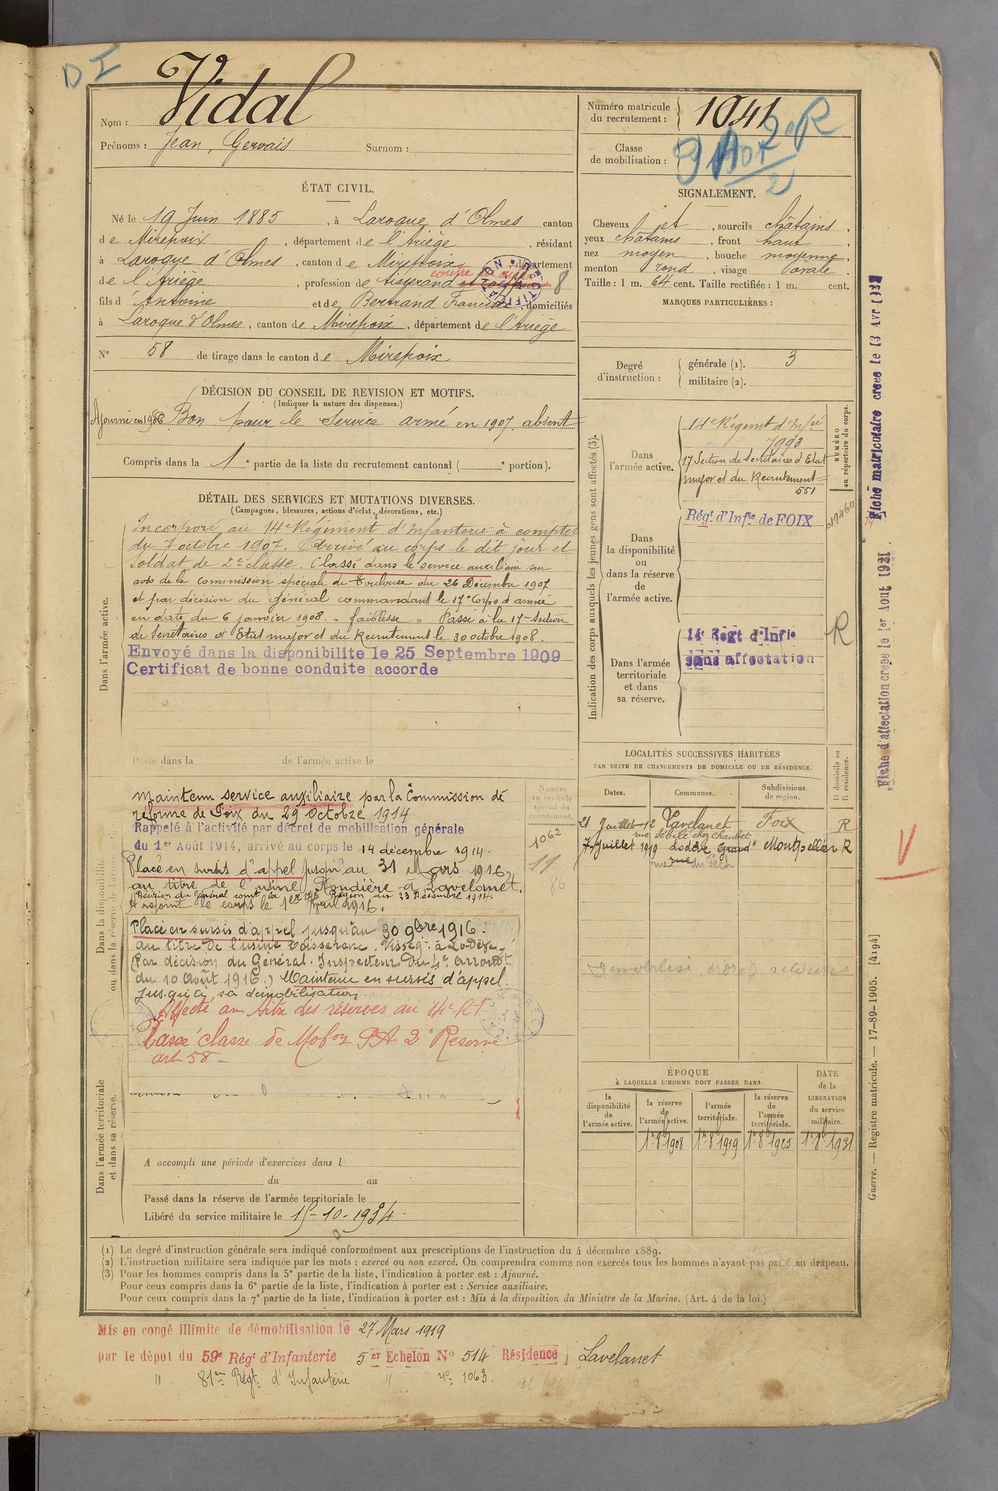 D I
Nom : Vidal
Prénoms : Jean, Gervais Surnom :
Numéro matricule du recrutement : 1041
Classe de mobilisation :
ÉTAT CIVIL.
Né le 19 Juin 1885, à Laroque d'Olmes canton
de Mirepoix, département de l'Ariège, résidant
à Laroque d'Olmes, canton de Mirepoix, département
de l'Ariège, profession de Tisserand
fils d' Antoine et de Bertrand Francise, domiciliés
à Laroque d'Olmes, canton de Mirepoix, département de l'Ariège
N° 58 de tirage dans le canton de Mirepoix
SIGNALEMENT.
Cheveux jet, sourcils châtains,
yeux châtains, front haut
nez moyen, bouche moyenne
menton rond, visage ovale
Taille : 1 m. 64 cent. Taille rectifiée : 1 m. cent.
MARQUES PARTICULIÈRES :
Degré d'instruction : générale (1). 3
militaire (2).
DÉCISION DU CONSEIL DE REVISION ET MOTIFS.
(Indiquer la nature des dispenses.)
Ajourné en 1906 Bon pour le Service armé en 1907, absent
Compris dans la 1e partie de la liste du recrutement cantonal ( e portion).
DÉTAIL DES SERVICES ET MUTATIONS DIVERSES.
(Campagnes, blessures, actions d'éclat, décorations, etc.)
Dans l'armée active.
Incorporé au 14e Régiment d'Infanterie à compter
du 7 octobre 1907. Arrivé au corps le dit jour et
soldat de 2e classe. Classé dans le service auxiliaire sur
avis de la commission spéciale de Toulouse du 26 Décembre 1907
et par décision du général commandant le 17e Corps d'armée
en date du 6 janvier 1908. "faiblesse" Passé à la 17e Section
de Secrétaires d'Etat major et du Recrutement le 30 octobre 1908.
Envoyé dans la disponibilité le 25 Septembre 1909
Certificat de bonne conduite accordé
Passé dans la de l'armée active le
Dans la disponibilité ou dans la réserve de l'armée active.
Maintenu service auxiliaire par la Commission de
réforme de Foix du 29 Octobre 1914
Rappelé à l'activité par décret de mobilisation générale
du 1er Août 1914, arrivé au corps le 14 décembre 1914.
Placé en sursis d'appel jusqu'au 31 Mars 1916
au titre de l'usine Fondière à Lavelanet.
A rejoint le corps le 1er Avril 1916.
Placé en sursis d'appel jusqu'au 30 9bre 1916.
au titre de l'usine à Lodève
(Par décision du Général Inspecteur du 4e arrondt
du 10 Août 1916.) Maintenu en sursis d'appel
jusqu'à sa démobilisation
Affecté au titre des réserves au 14e R.I
Passé classe de Mobon 2e Réserve
art 58
Dans l'armée territoriale et dans sa réserve.
A accompli une période d'exercices dans l
du au
Passé dans la réserve de l'armée territoriale le
Libéré du service militaire le 15-10-1934.
Numéro au contrôle spécial du recrutement.
1062
11
86
Indication des corps auxquels les jeunes gens sont affectés (3).
NUMÉRO au répertoire du corps.
Dans l'armée active.
14e Régiment d'Infie
7993
17 Section de Secrétaires d'Etat
major et du Recrutement
551
Dans la disponibilité ou dans la réserve de l'armée active.
Régt d'Infie de FOIX
Dans l'armée territoriale et dans sa réserve.
14e Regt d'Infie
sans affectation
R
LOCALITÉS SUCCESSIVES HABITÉES
PAR SUITE DE CHANGEMENTS DE DOMICILE OU DE RÉSIDENCE.
Dates. Communes. Subdivisions de région. D domicile ou R résidence.
21 Juillet 12 Lavelanet Foix R
7 Juillet 1919 Lodève Grand' Montpellier R
ÉPOQUE
À LAQUELLE L'HOMME DOIT PASSER DANS
la disponibilité de l'armée active.
la réserve de l'armée active.
l'armée territoriale.
la réserve de l'armée territoriale.
DATE de la LIBÉRATION du service militaire.
1er 8bre 1908 1er 8bre 1919 1er 8bre 1925 1er 8bre 1931
Fiche matriculaire créée le 13 Avr 193
Fiche d'affectation créée le 1er Août 1921
Guerre. — Registre matricule. — 17-89-1905. [4194]
(1) Le degré d'instruction générale sera indiqué conformément aux prescriptions de l'instruction du 4 décembre 1889.
(2) L'instruction militaire sera indiquée par les mots : exercé ou non exercé. On comprendra comme non exercés tous les hommes n'ayant pas passé au drapeau.
(3) Pour les hommes compris dans la 5e partie de la liste, l'indication à porter est : Ajourné.
Pour ceux compris dans la 6e partie de la liste, l'indication à porter est : Service auxiliaire.
Pour ceux compris dans la 7e partie de la liste, l'indication à porter est : Mis à la disposition du Ministre de la Marine. (Art. 4 de la loi.)
Mis en congé illimité de démobilisation le 27 Mars 1919
par le dépôt du 59e Régt d'Infanterie 5er Echelon N° 514 Résidence Lavelanet
" 81me Régt d'Infanterie " n° 1063.